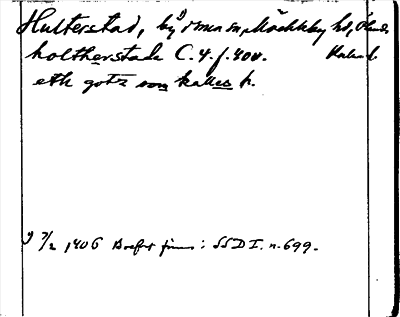 Hulterstad, by i smma sn, Möckleby hd, Öland,
Kalm l.
holtherstada C. 4. f. 40v.
eth gotz som kalles h.
7/2 1406 Brefvet finns: SSD I. n. 699.